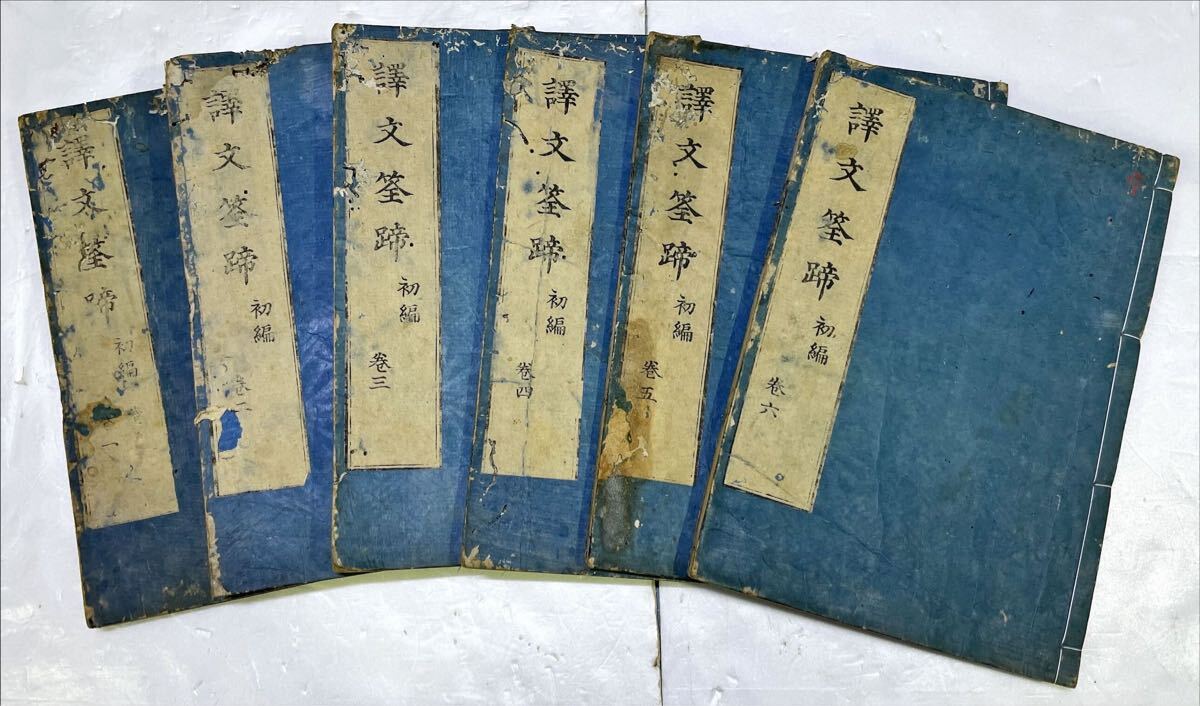 譯文筌蹄
初編
一
譯文筌蹄
初編
卷二
譯文筌蹄
初編
卷三
譯文筌蹄
初編
卷四
譯文筌蹄
初編
卷五
譯文筌蹄
初編
卷六